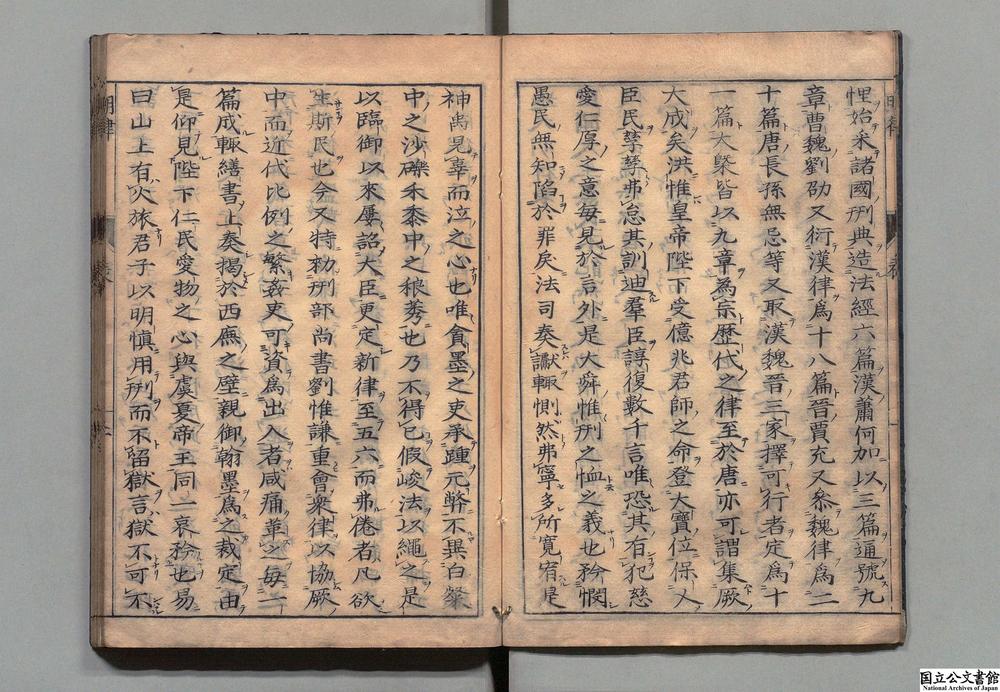 悝始采諸國刑典造法經六篇漢蕭何加以三篇通號九
章曹魏劉劭又衍漢律爲十八篇晉賈充又參魏律爲二
十篇唐長孫無忌等又取漢魏晉三家擇可行者定爲十
一篇大槩皆以九章爲宗歷代之律至於唐亦可謂集厥
大成矣洪惟皇帝陛下受億兆君師之命登大寶位保乂
臣民孳孳弗怠其訓迪羣臣諄復數千言唯恐其有犯慈
愛仁厚之意每見於言外是大舜惟刑之恤之義也矜憫
愚民無知陷於罪戾法司奏讞輒惻然弗寧多所寬宥是
神禹見辜而泣之心也唯貪墨之吏承踵元弊不異白粲
中之沙礫禾黍中之稂莠也乃不得已假峻法以繩之是
以臨御以來屢詔大臣更定新律至五六而弗倦者凡欲
生斯民也今又特勑刑部尚書劉惟謙重會衆律以協厥
中而近代比例之繁姦吏可資爲出入者咸痛革之每一
篇成輒繕書上奏揭於西廡之壁親御翰墨爲之裁定由
是仰見陛下仁民愛物之心與虞夏帝王同一哀矜也易
曰山上有火旅君子以明愼用刑而不留獄言獄不可不
明律
国立公文書館
National Archives of Japan